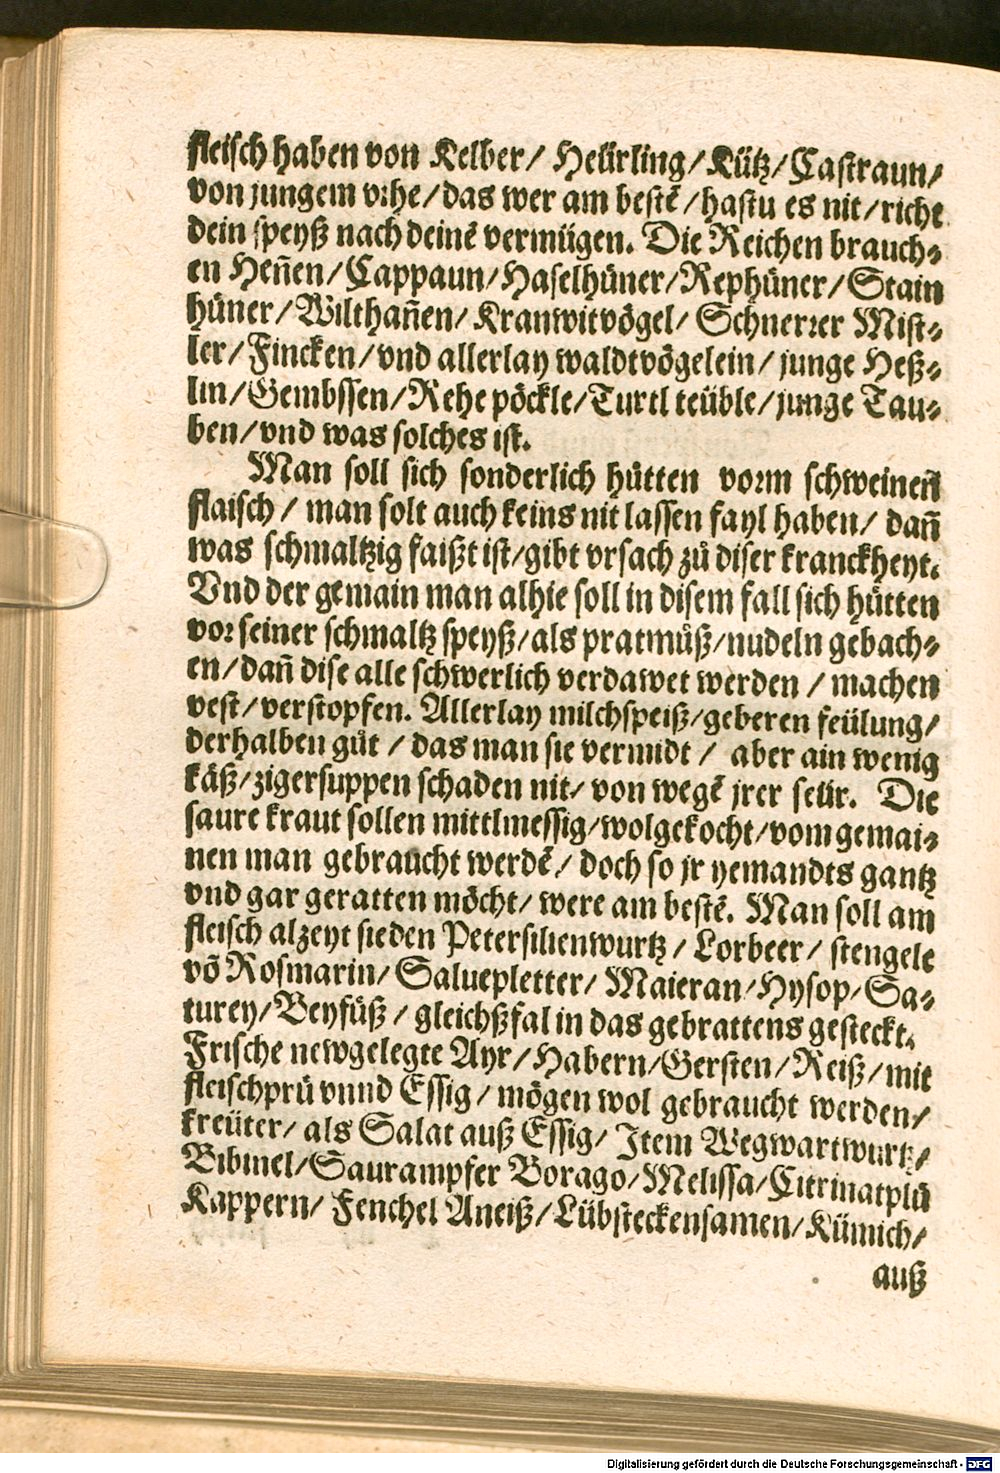 fleisch haben von Kelber/ Heürling/ Kütz/ Castraun/
von jungem vihe/ das wer am bestē/ hastu es nit/ richt
dein speyß nach deinē vermügen. Die Reichen brauch⸗
en Heñen/ Cappaun/ Haselhüner/ Rephüner/ Stain
hüner/ Wilthañen/ Kranwitvögel/ Schnerrer Mist⸗
ler/ Fincken/ vnd allerlay waldtvögelein/ junge Heß⸗
lin/ Gembssen/ Rehe pöckle/ Turtl teüble/ junge Tau⸗
ben/ vnd was solches ist.
Man soll sich sonderlich hütten vorm schweineñ
flaisch/ man solt auch keins nit lassen fayl haben/ dañ
was schmaltzig faißt ist/ gibt vrsach zů diser kranckheyt.
Vnd der gemain man alhie soll in disem fall sich hütten
vor seiner schmaltz speyß/ als pratmůß/ nudeln gebach⸗
en/ dañ dise alle schwerlich verdawet werden/ machen
vest/ verstopfen. Allerlay milchspeiß/ geberen feülung/
derhalben gůt/ das man sie vermidt/ aber ain wenig
käß/ zigersuppen schaden nit/ von wegē jrer seür. Die
saure kraut sollen mittlmessig/ wolgekocht/ vom gemai⸗
nen man gebraucht werdē/ doch so jr yemandts gantz
vnd gar geratten möcht/ were am bestē. Man soll am
fleisch alzeyt sieden Petersilienwurtz/ Lorbeer/ stengele
vō Rosmarin/ Saluepletter/ Maieran/ Hysop/ Sa⸗
turey/ Beyfůß/ gleichßfal in das gebrattens gesteckt.
Frische newgelegte Ayr/ Habern/ Gersten/ Reiß/ mit
fleischprü vnnd Essig/ mögen wol gebraucht werden/
kreüter/ als Salat auß Essig/ Item Wegwartwurtz/
Bibinel/ Saurampfer Borago/ Melissa/ Citrinatplü
Kappern/ Fenchel Aneiß/ Lübsteckensamen/ Kümich/
auß
Digitalisierung gefördert durch die Deutsche Forschungsgemeinschaft - DFG